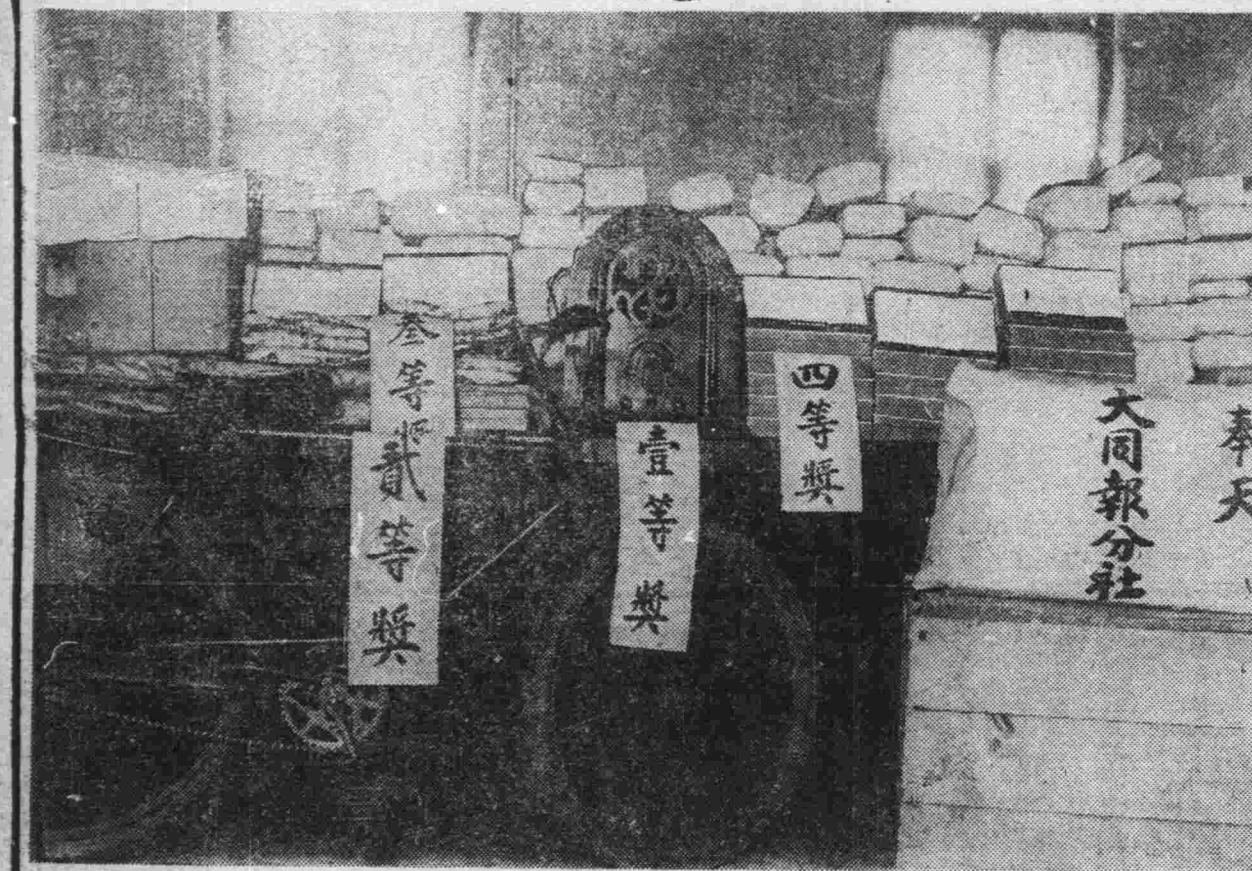 奉天
大同報分社
四等獎
壹等獎
叁等獎
貳等獎